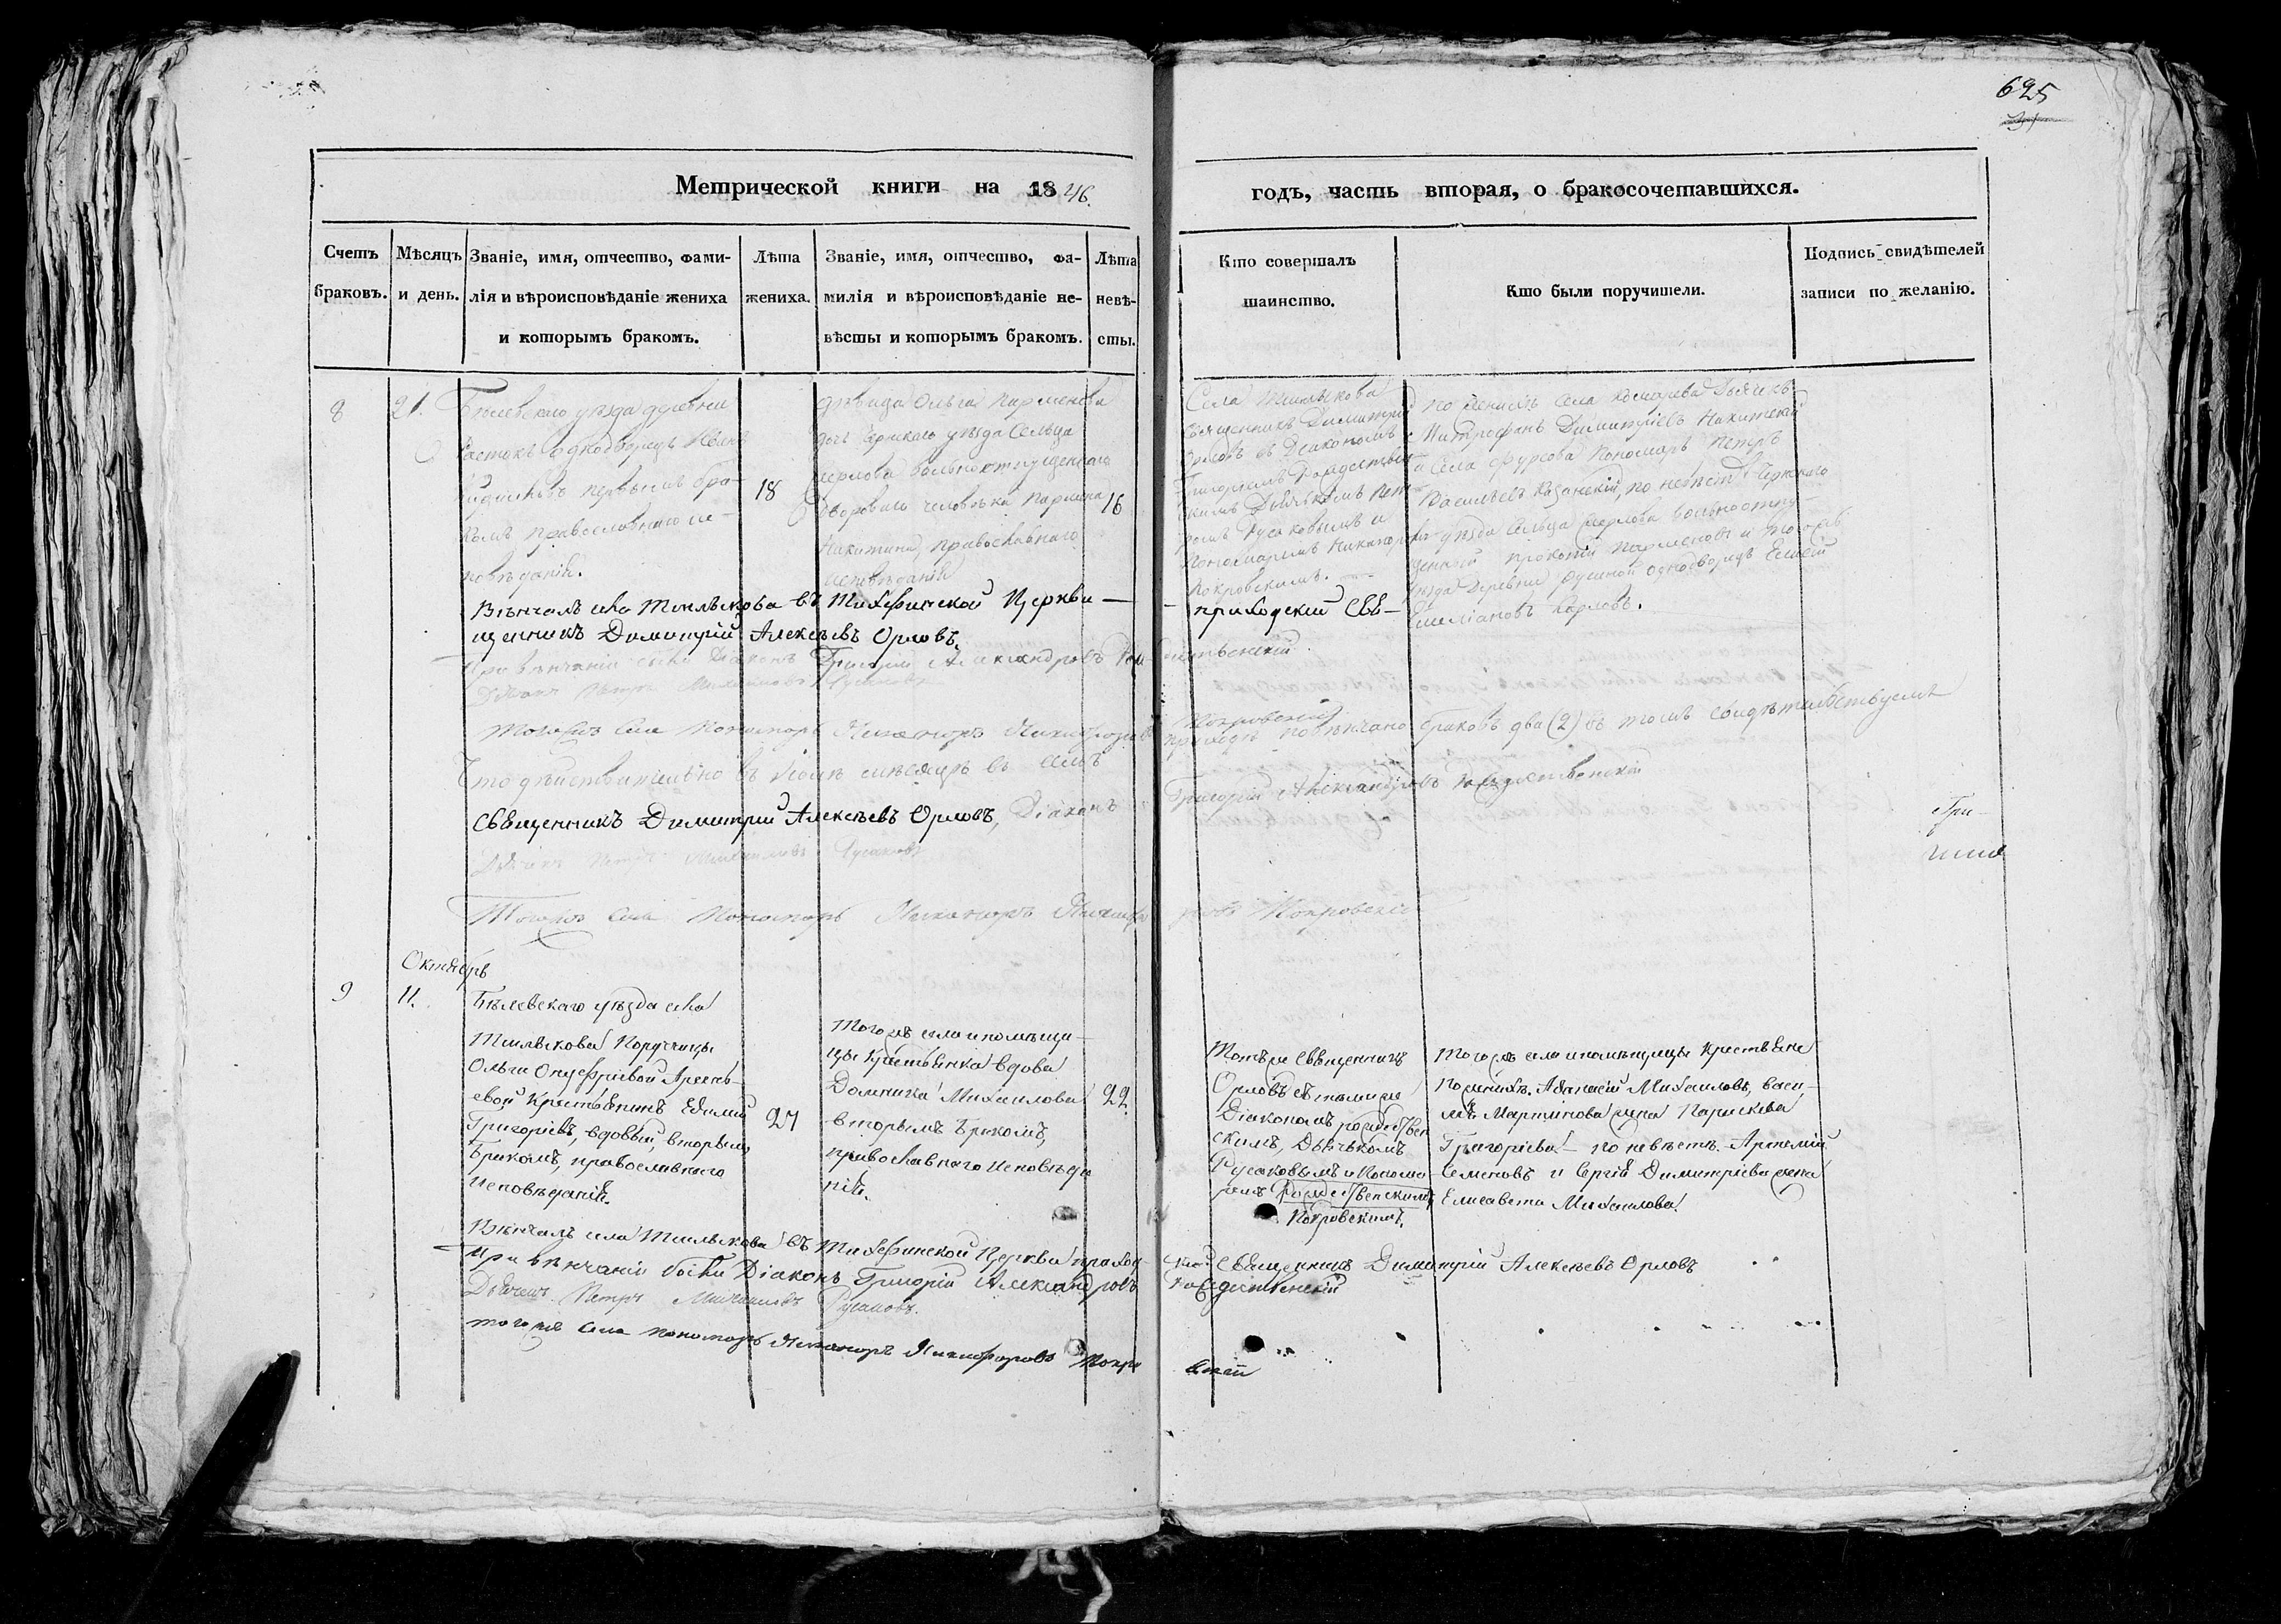 625
Метрической книги на 1846.
годъ, часть вторая, о бракосочетавшихся.
Счетъ
браковъ.
Мѣсяцъ
и день.
Званіе, имя, отчество, фами-
лія и вѣроисповѣданіе жениха
и которымъ бракомъ.
Лѣта
жениха.
Званіе, имя, отчество, фа-
милія и вѣроисповѣданіе не-
вѣсты и которымъ бракомъ.
Лѣта
невѣ-
сты.
Кто совершалъ
таинство.
Кто были поручители.
Подпись свидѣтелей
записи по желанію.
8
21.
Бѣлевскаго уѣзда деревни
однодворецъ
первымъ бра-
комъ православнаго ис-
повѣданія.
18
дѣвица Ольга Парменова
дочь уѣзда Сельца
вольноотпущеннаго
двороваго человѣка Пармена
Никитина, православнаго
исповѣданія
16
Села
священникъ Димитрій
Орловъ съ Діакономъ
Григоріемъ Рождествен-
скимъ Дьячкомъ Пет-
ромъ Русаковымъ и
Пономаремъ Никаноромъ
Покровскимъ.
по женихѣ села Дьячекъ
Митрофанъ Димитріевъ
и Села Фурсова Пономарь Петръ
Васильевъ Казанскій, по невѣстѣ Чернскаго
уѣзда Сельца вольноотпу-
щенный Прокопій Парменовъ и того жъ
уѣзда Деревни однодворецъ
Емеліановъ Карловъ.
Вѣнчалъ села въ Тихфинской Церкви —
приходскій Свя-
щенникъ Димитрій Алексѣевъ Орловъ.
При вѣнчаніи были Діаконъ Григорій Александровъ Рож-
дественскій
Дьячекъ Петръ Михайловъ Русаковъ
Тогожъ села Пономарь Никаноръ Никифоровъ
Покровскій
Что дѣйствительно въ Іюлѣ мѣсяцѣ въ семъ
приходѣ повѣнчано браковъ два (2) въ томъ свидѣтельствуемъ
Священникъ Димитрій Алексѣевъ Орловъ, Діаконъ
Григорій Александровъ Рождественскій
Дьячекъ Петръ Михайловъ Русаковъ
Тогожъ села Пономарь Никаноръ Никифо-
ровъ Покровскій
Октябрь
9
11.
Бѣлевскаго уѣзда села
Поручицы
Ольги Онуфріевой Арсень-
евой Крестьянинъ Ефимій
Григорьевъ, вдовый, вторымъ
Бракомъ, православнаго
исповѣданія.
27
Того жъ села и помѣщи-
цы Крестьянка вдова
Домника Михаилова
вторымъ Бракомъ,
православнаго исповѣда-
нія.
22.
Тотъ же Священникъ
Орловъ съ тѣмъ же
Діакономъ рождествен-
скимъ, Дьячькомъ
Русаковымъ и Понома-
ремъ Рождественскимъ
Покровскимъ.
Того жъ села и помѣщицы Крестьяне
По женихѣ. Афанасій Михаиловъ, васи-
лія Мартинова жена Параскева
Григорьева — по невѣстѣ. Артемій
Семеновъ и Сергія Димитріева жена
Елисавета Михаилова.
Вѣнчалъ села въ Тихфинской Церкви приход-
скій Священникъ Димитрій Алексѣевъ Орловъ
При вѣнчаніи были Діаконъ Григорій Александровъ
Рождественскій
Дьячекъ Петръ Михайловъ Русаковъ.
тогожъ села пономарь Никаноръ Никифоровъ Покро-
вскій